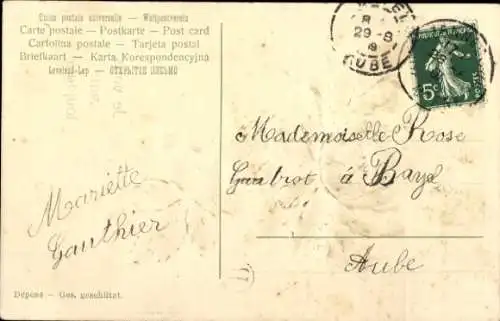 Union postale universelle — Weltpostverein
Carte postale — Postkarte — Post card
Cartolina postale — Tarjeta postal
Briefkaart — Karta Korespondencyjna
Levelező-Lap — ОТКРЫТОЕ ПИСЬМО
29-8
AUBE
5c
Mademoiselle Rose
Gaubrot à Bayel
Aube
Mariette
Gauthier
Dépose — Ges. geschützt.